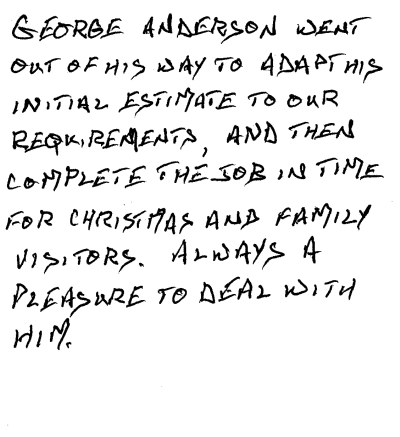 GEORGE ANDERSON WENT
OUT OF HIS WAY TO ADAPT HIS
INITIAL ESTIMATE TO OUR
REQUIREMENTS, AND THEN
COMPLETE THE JOB IN TIME
FOR CHRISTMAS AND FAMILY
VISITORS. ALWAYS A
PLEASURE TO DEAL WITH
HIM.